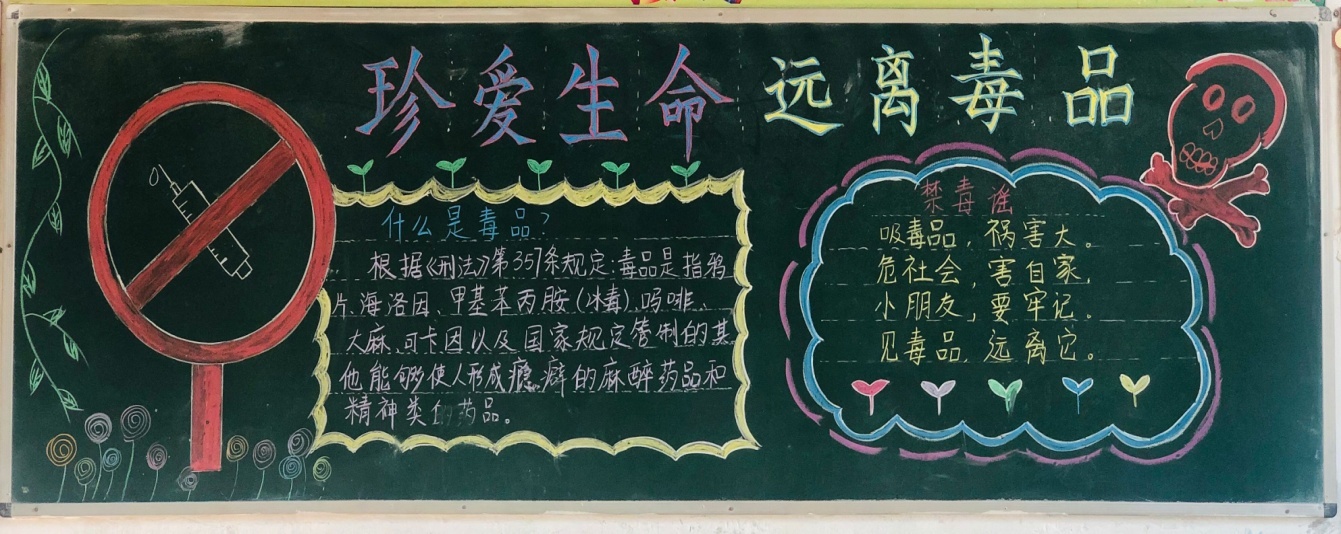 珍爱生命 远离毒品
什么是毒品？
根据《刑法》第357条规定:毒品是指鸦
片、海洛因、甲基苯丙胺(冰毒)、吗啡、
大麻、可卡因以及国家规定管制的其
他能够使人形成瘾癖的麻醉药品和
精神类的药品。
禁毒谣
吸毒品,祸害大。
危社会,害自家,
小朋友,要牢记。
见毒品,远离它。